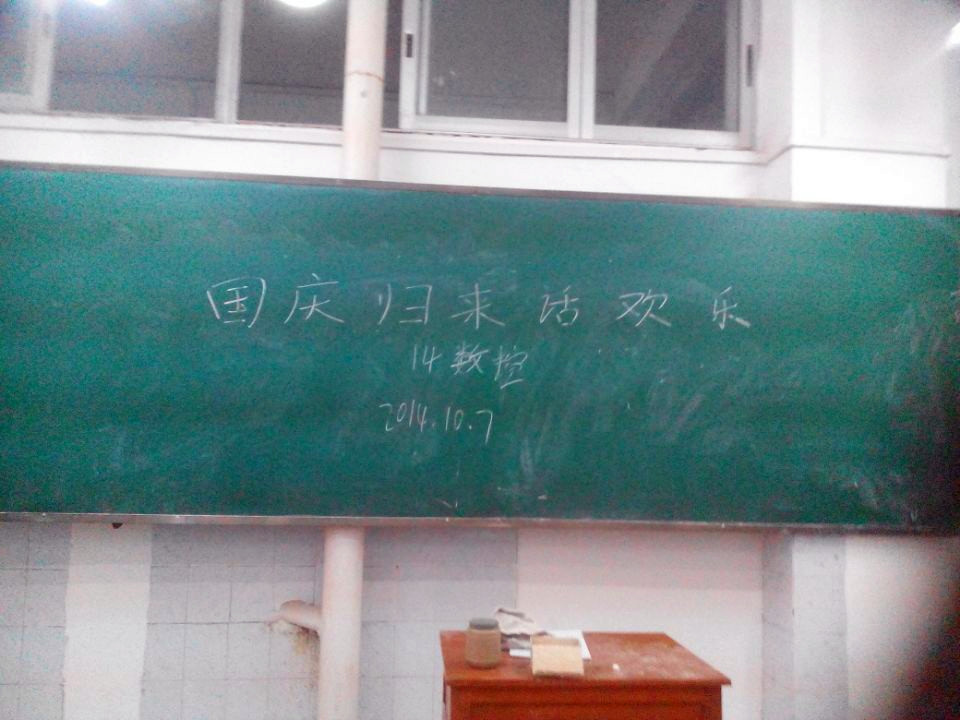 国庆归来话欢乐
14数控
2014.10.7